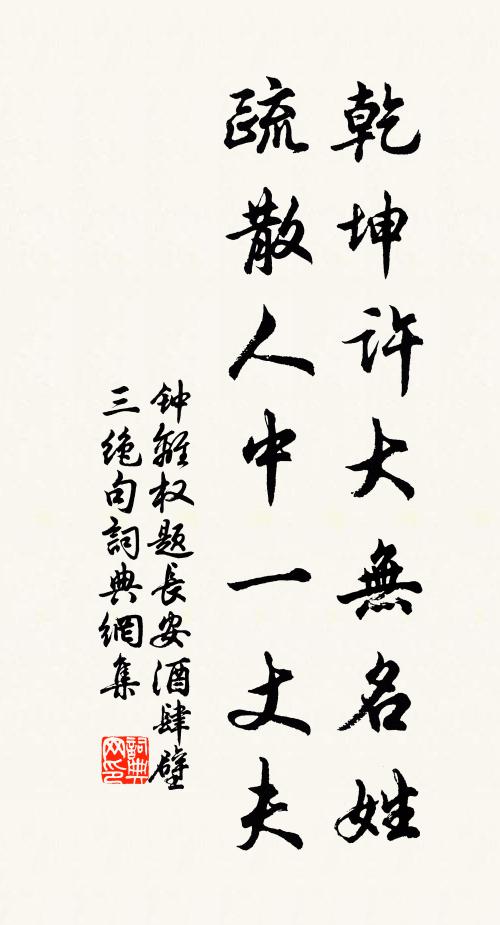 乾坤許大無名姓
疏散人中一丈夫
钟離权题長安酒肆壁
三绝句詞典網集
詞典网印